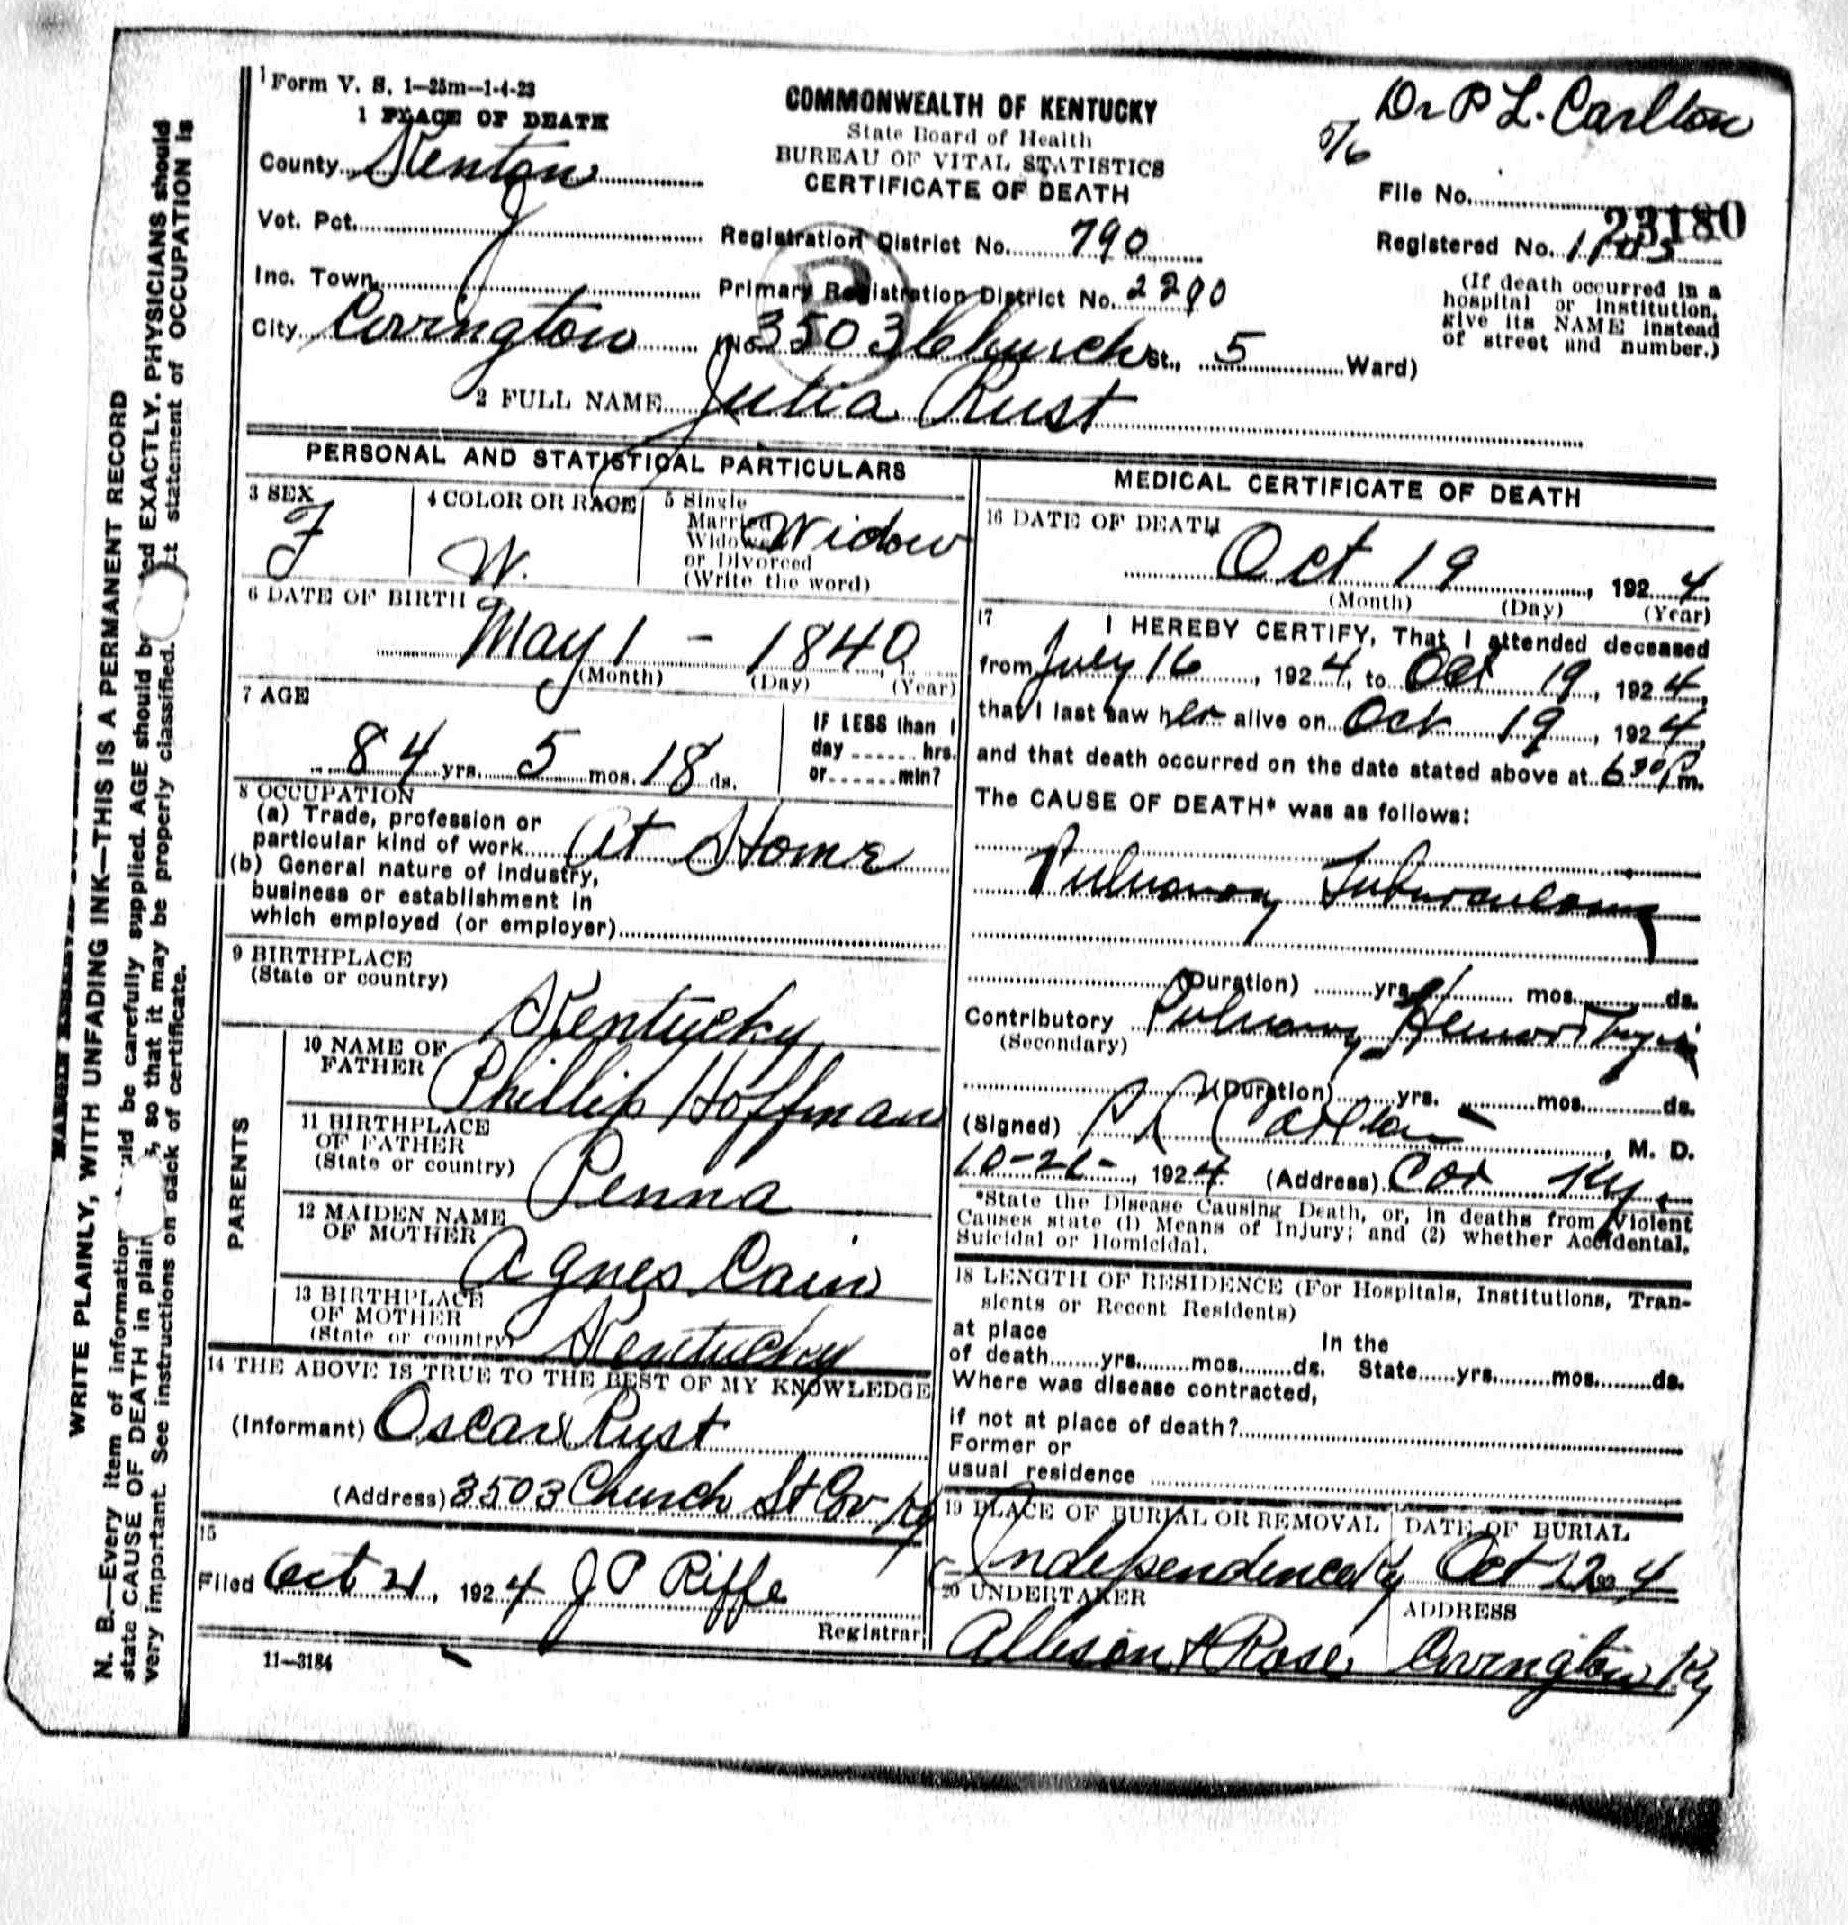 Form V. S. 1—25m—1-4-23
1 PLACE OF DEATH
COMMONWEALTH OF KENTUCKY
State Board of Health
BUREAU OF VITAL STATISTICS
CERTIFICATE OF DEATH
Dr P L. Carlton
5/6
County Kenton
File No. 23180
Vot. Pct.
Registration District No. 790
Registered No. 1103
Inc. Town
Primary Registration District No. 2290
(If death occurred in a
hospital or institution,
give its NAME instead
of street and number.)
City Covington (No. 3503 Church St., 5 Ward)
2 FULL NAME Julia Rust
PERSONAL AND STATISTICAL PARTICULARS
3 SEX F
4 COLOR OR RACE W.
5 Single
Married
Widowed
or Divorced
(Write the word)
Widow
6 DATE OF BIRTH
May 1 - 1840
(Month) (Day) (Year)
7 AGE
84 yrs. 5 mos. 18 ds.
IF LESS than 1
day ...... hrs.
or ...... min?
8 OCCUPATION
(a) Trade, profession or
particular kind of work At Home
(b) General nature of industry,
business or establishment in
which employed (or employer)
9 BIRTHPLACE
(State or country)
Kentucky
PARENTS
10 NAME OF
FATHER
Phillip Hoffman
11 BIRTHPLACE
OF FATHER
(State or country)
Penna
12 MAIDEN NAME
OF MOTHER
Agnes Cain
13 BIRTHPLACE
OF MOTHER
(State or country)
Kentucky
14 THE ABOVE IS TRUE TO THE BEST OF MY KNOWLEDGE
(Informant) Oscar Rust
(Address) 3503 Church St Cov Ky
15
Filed Oct 21, 1924 J P Riffe
Registrar
11—3184
MEDICAL CERTIFICATE OF DEATH
16 DATE OF DEATH
Oct 19, 1924
(Month) (Day) (Year)
17 I HEREBY CERTIFY, That I attended deceased
from July 16, 1924, to Oct 19, 1924,
that I last saw her alive on Oct 19, 1924,
and that death occurred on the date stated above at 6 30 P m.
The CAUSE OF DEATH* was as follows:
Pulmonary Tuberculosis
(Duration) yrs. mos. ds.
Contributory Pulmonary Hemorrhage
(Secondary)
(Duration) yrs. mos. ds.
(Signed) P L Carlton, M. D.
10-21-, 1924 (Address) Cov Ky
*State the Disease Causing Death, or, in deaths from Violent
Causes state (1) Means of Injury; and (2) whether Accidental,
Suicidal or Homicidal.
18 LENGTH OF RESIDENCE (For Hospitals, Institutions, Tran-
sients or Recent Residents)
at place In the
of death yrs. mos. ds. State yrs. mos. ds.
Where was disease contracted,
if not at place of death?
Former or
usual residence
19 PLACE OF BURIAL OR REMOVAL
Independence Ky
DATE OF BURIAL
Oct 22 1924
20 UNDERTAKER
Allison & Rose
ADDRESS
Covington Ky
WRITE PLAINLY, WITH UNFADING INK—THIS IS A PERMANENT RECORD
N. B.—Every item of information be carefully supplied. AGE should be EXACTLY. PHYSICIANS should
state CAUSE OF DEATH in plain so that it may be properly classified. statement of OCCUPATION is
very important. See instructions on back of certificate.